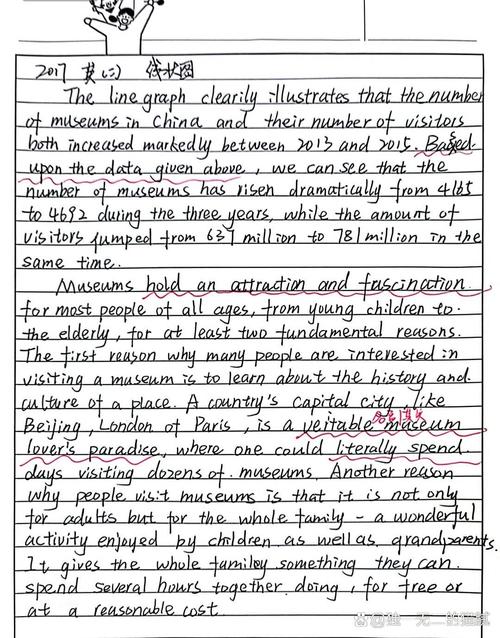 2017 英(二) 线状图
The line graph clearily illustrates that the number
of museums in China and their number of visitors
both increased markedly between 2013 and 2015. Based
upon the data given above, we can see that the
number of museums has risen dramatically from 4165
to 4692 during the three years, while the amount of
visitors jumped from 637 million to 781 million in the
same time.
Museums hold an attraction and fascination
for most people of all ages, from young children to
the elderly, for at least two fundamental reasons.
The first reason why many people are interested in
visiting a museum is to learn about the history and
culture of a place. A country's capital city, like
Beijing, London of Paris, is a veritable museum
lover's paradise, where one could literally spend
days visiting dozens of museums. Another reason
why people visit museums is that it is not only
for adults but for the whole family - a wonderful
activity enjoyed by children as well as grandparents.
It gives the whole familoy something they can
spend several hours together doing, for free or
at a reasonable cost.